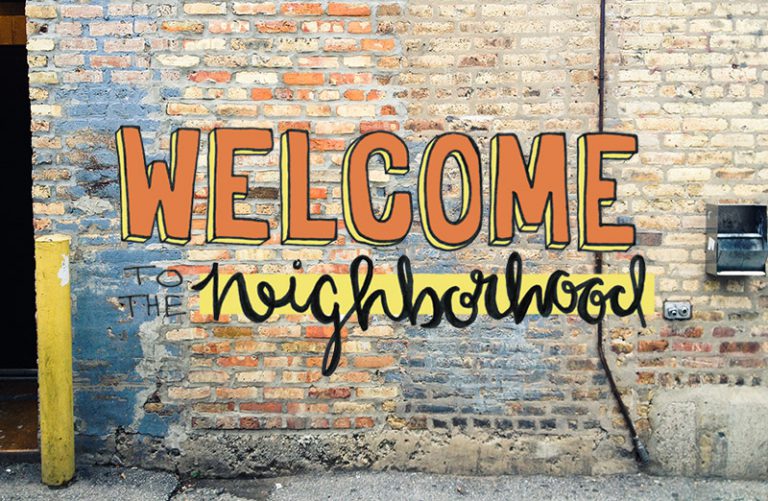 WELCOME
TO
THE
neighborhood